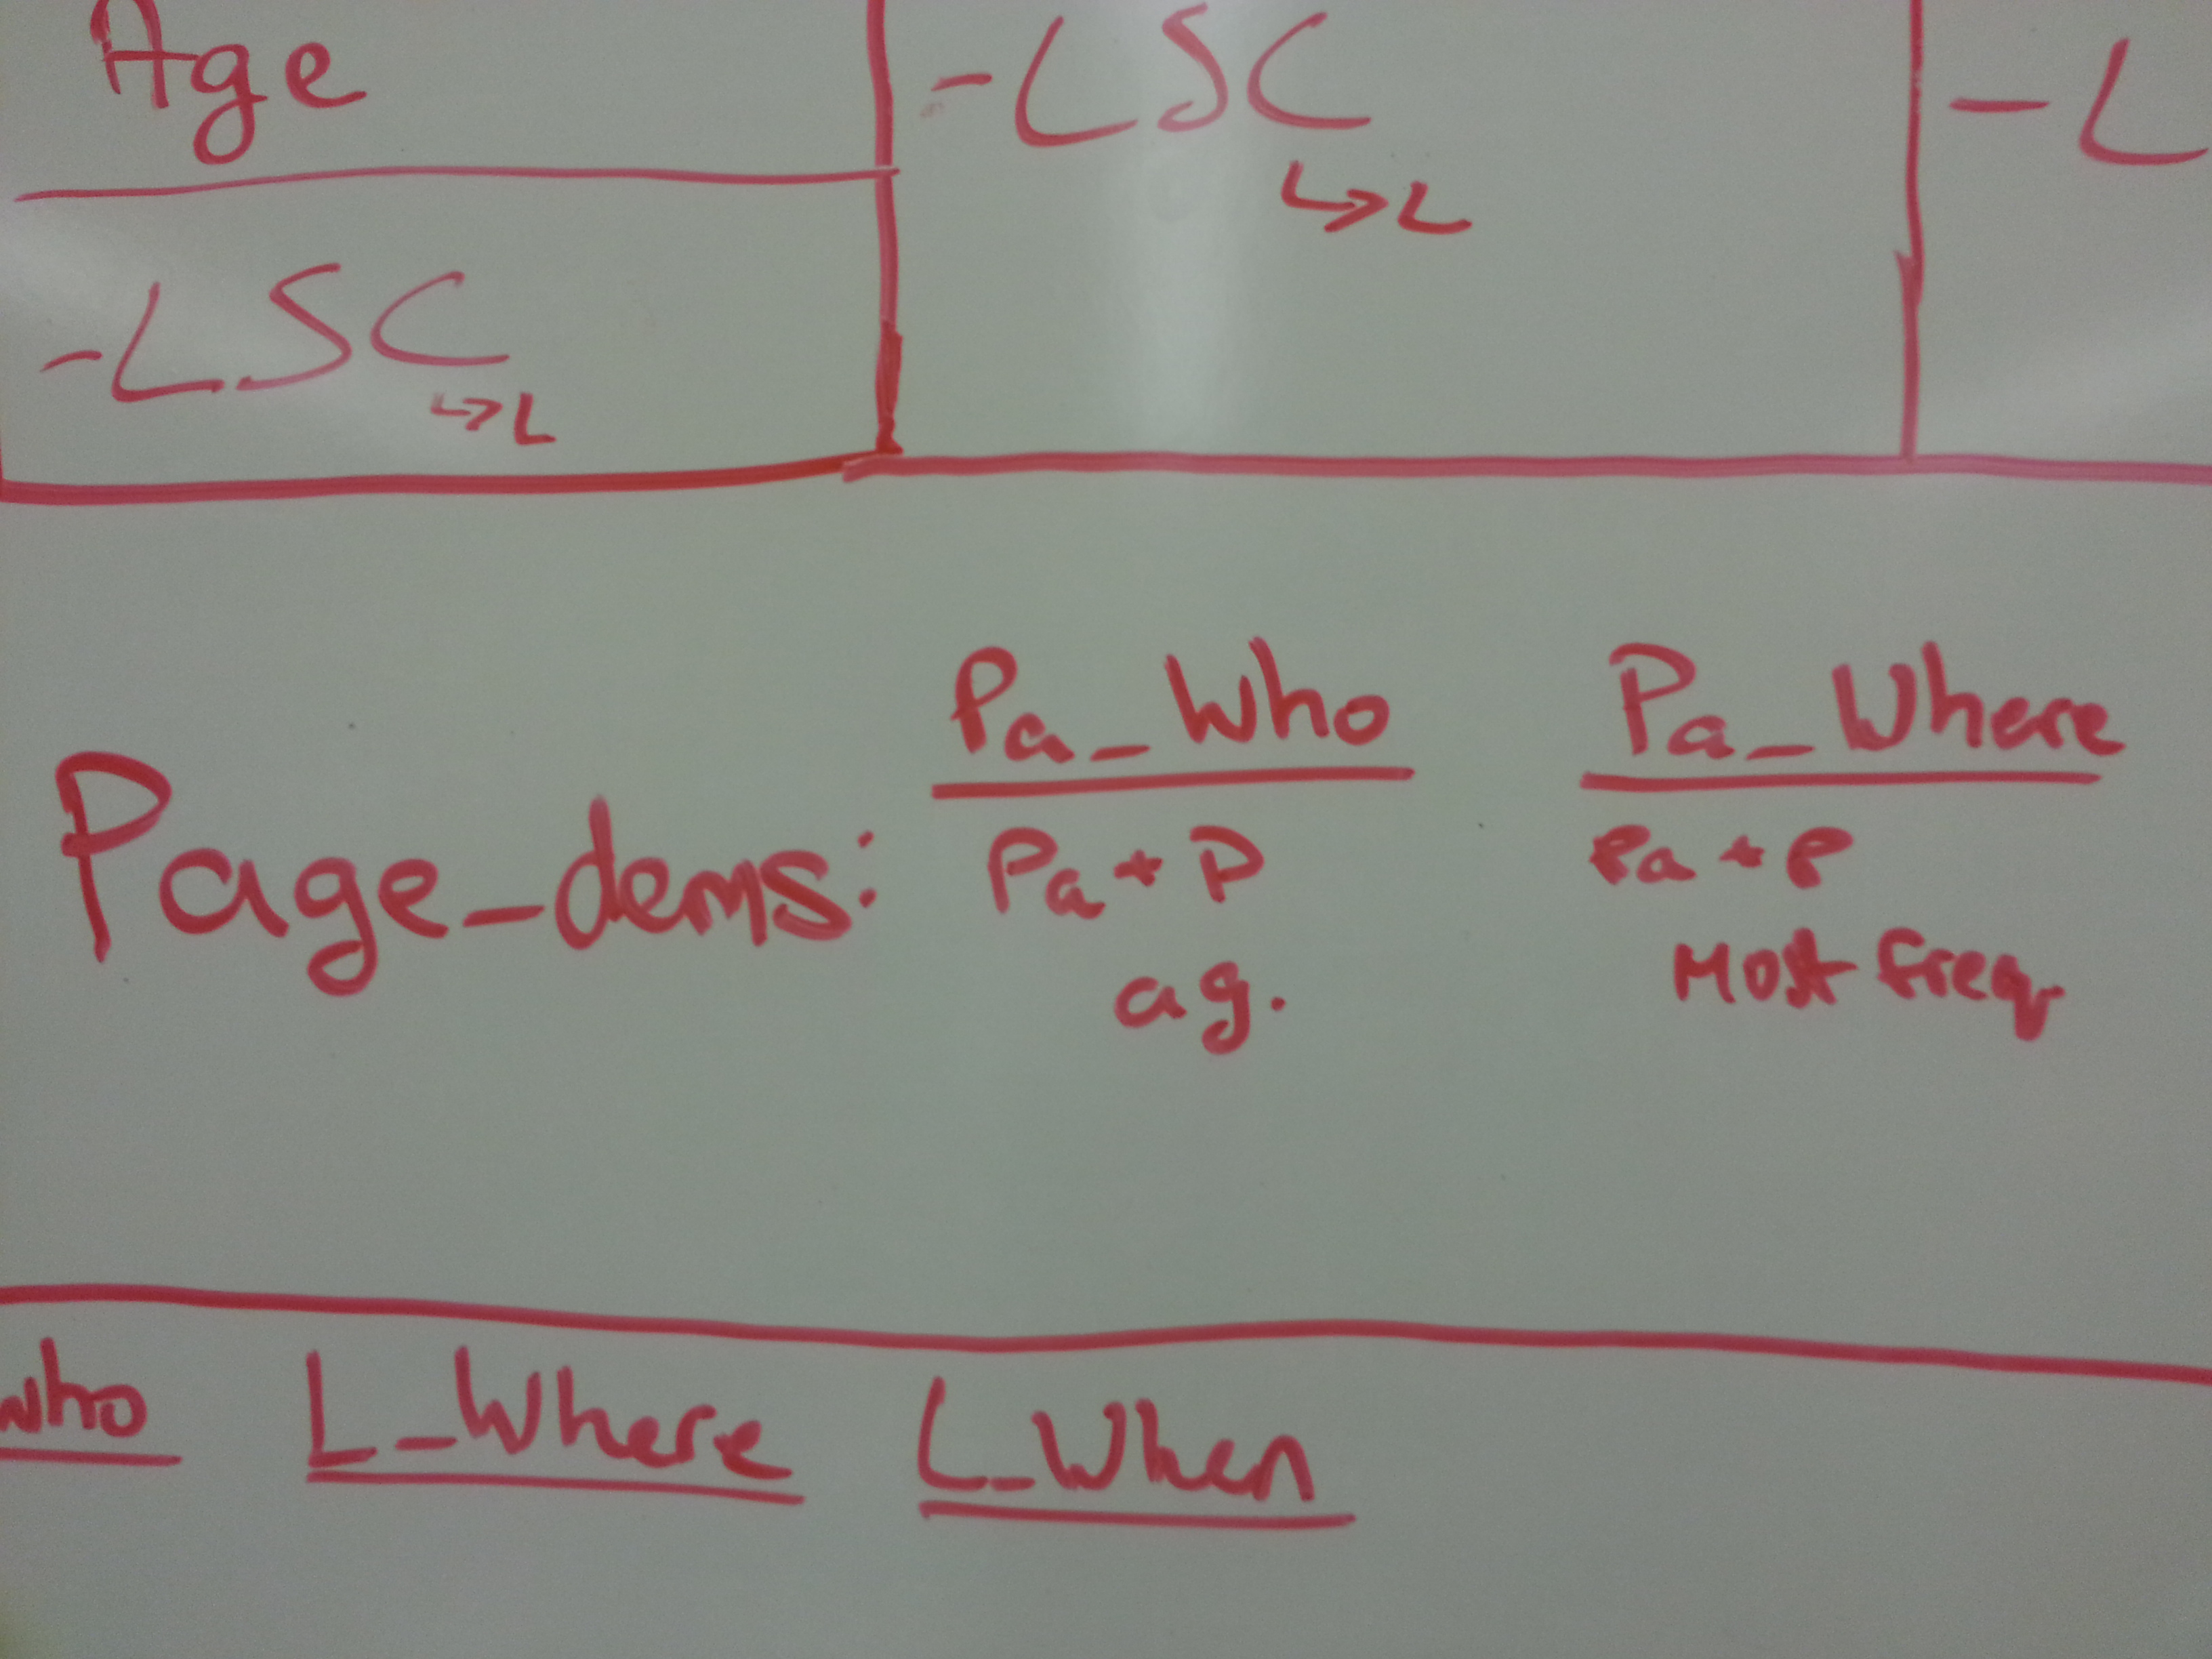 Age
-LSC
↳L
-LSC
↳L
-L
Page_dems:
Pa_Who
Pa + P
ag.
Pa_Where
Pa + P
Most freq
who
L_Where
L_When